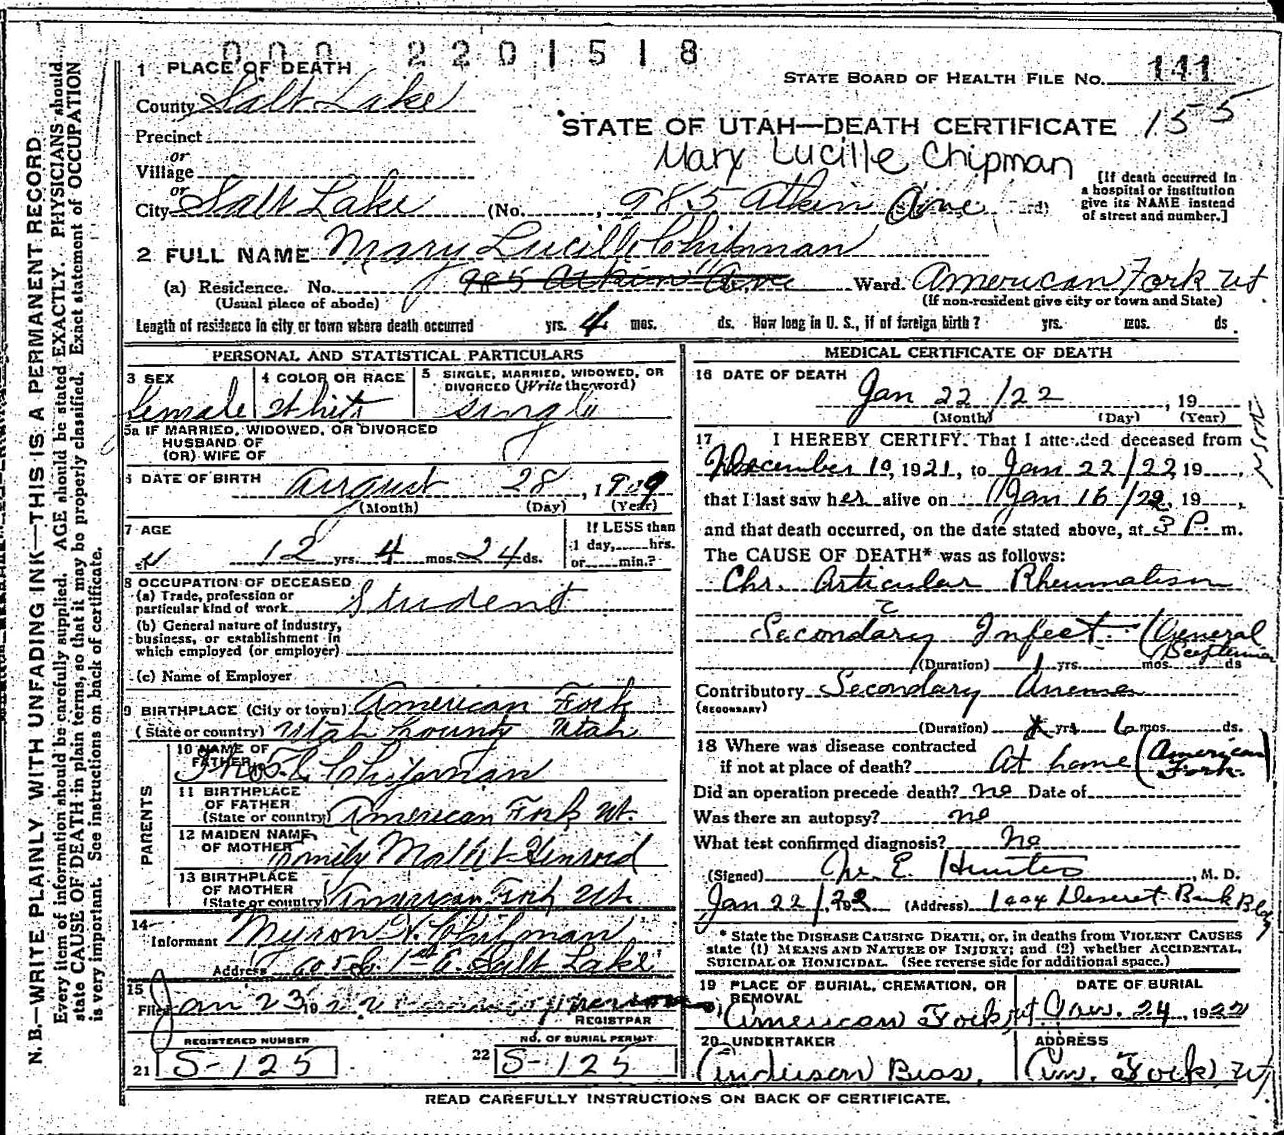 0 0 0 2 2 0 1 5 1 8
STATE BOARD OF HEALTH FILE NO. 141
155
1 PLACE OF DEATH
County Salt Lake
Precinct
or
Village
or
City Salt Lake (No. , 985 Atkin Ave rd)
STATE OF UTAH—DEATH CERTIFICATE
Mary Lucille Chipman
[If death occurred in
a hospital or institution
give its NAME instead
of street and number.]
2 FULL NAME Mary Lucille Chipman
(a) Residence. No. 985 Atkin Ave Ward. American Fork Ut
(Usual place of abode) (If non-resident give city or town and State)
Length of residence in city or town where death occurred yrs. 4 mos. ds. How long in U. S., if of foreign birth? yrs. mos. ds.
PERSONAL AND STATISTICAL PARTICULARS
3 SEX 4 COLOR OR RACE 5 SINGLE, MARRIED, WIDOWED, OR
DIVORCED (Write the word)
female white single
5a IF MARRIED, WIDOWED, OR DIVORCED
HUSBAND OF
(OR) WIFE OF
6 DATE OF BIRTH August 28, 1909
(Month) (Day) (Year)
7 AGE If LESS than
12 yrs. 4 mos. 24 ds. 1 day, hrs.
or min.?
8 OCCUPATION OF DECEASED
(a) Trade, profession or
particular kind of work Student
(b) General nature of industry,
business, or establishment in
which employed (or employer)
(c) Name of Employer
9 BIRTHPLACE (City or town) American Fork
(State or country) Utah County Utah
PARENTS
10 NAME OF
FATHER Chipman
11 BIRTHPLACE
OF FATHER
(State or country) American Fork Ut.
12 MAIDEN NAME
OF MOTHER Emily
13 BIRTHPLACE
OF MOTHER
(State or country) American Fork Ut.
14
Informant Myron Chipman
Address Salt Lake
15
Filed Jan 23 19
REGISTRAR
REGISTERED NUMBER NO. OF BURIAL PERMIT
21 S-125 22 S-125
MEDICAL CERTIFICATE OF DEATH
16 DATE OF DEATH
Jan 22/22, 19
(Month) (Day) (Year)
17 I HEREBY CERTIFY, That I attended deceased from
December 10, 1921, to Jan 22/22, 19
that I last saw her alive on Jan 16/22, 19
and that death occurred, on the date stated above, at 3 P m.
The CAUSE OF DEATH* was as follows:
Chr. Articular Rheumatism
c
Secondary Infect (General
(Duration) 1 yrs. mos. ds
Contributory Secondary Anemia
(SECONDARY)
(Duration) yrs. 6 mos. ds.
18 Where was disease contracted
if not at place of death? At home (American
Fork.)
Did an operation precede death? no Date of
Was there an autopsy? no
What test confirmed diagnosis? No
(Signed) E. Hunter, M. D.
Jan 22/22 (Address) 1004 Deseret Bank Bldg
* State the DISEASE CAUSING DEATH, or, in deaths from VIOLENT CAUSES
state (1) MEANS AND NATURE OF INJURY; and (2) whether ACCIDENTAL,
SUICIDAL OR HOMICIDAL. (See reverse side for additional space.)
19 PLACE OF BURIAL, CREMATION, OR
REMOVAL DATE OF BURIAL
American Fork, Ut Jan. 24, 1922
20 UNDERTAKER ADDRESS
Anderson Bros. Am. Fork, Ut
READ CAREFULLY INSTRUCTIONS ON BACK OF CERTIFICATE.
N. B.—WRITE PLAINLY WITH UNFADING INK—THIS IS A PERMANENT RECORD
Every item of information should be carefully supplied. AGE should be stated EXACTLY. PHYSICIANS should
state CAUSE OF DEATH in plain terms, so that it may be properly classified. Exact statement of OCCUPATION
is very important. See instructions on back of certificate.